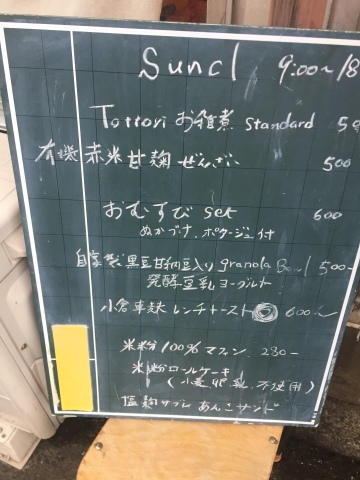 Suncl 9:00~18
Tottori お雑煮 standard 50
有機赤米甘麹ぜんざい 500
おむすび set 600
ぬかづナ. ポタージュ付
自家製黒豆甘納豆入り granola Bowl 500-
発酵豆乳ヨーグルト
小倉車麸 レンチトースト 600~
米粉 100% マフィン 230-
米粉ロールケーキ
(小麦 卵 乳 不使用)
塩麹サブレ あんこサンド